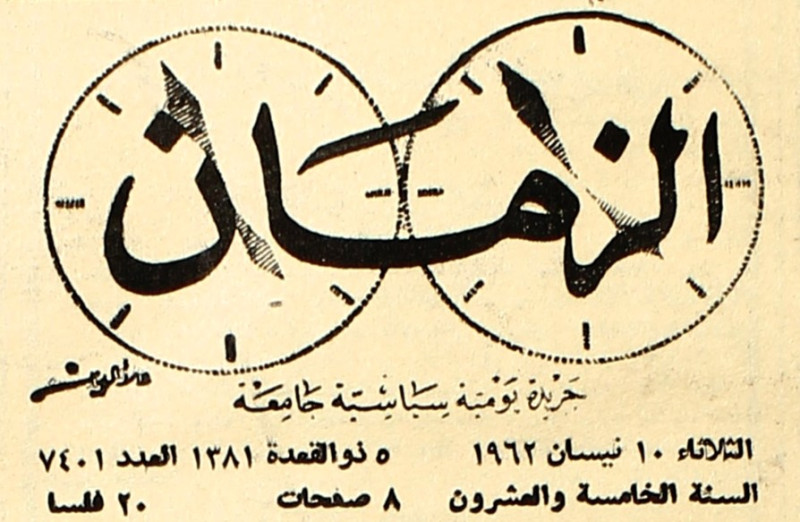 الزمان
جريدة يومية سياسية جامعة
الثلاثاء ١٠ نيسان ١٩٦٢ ٥ ذو القعدة ١٣٨١ العدد ٧٤٠١
السنة الخامسة والعشرون ٨ صفحات ٢٠ فلسا